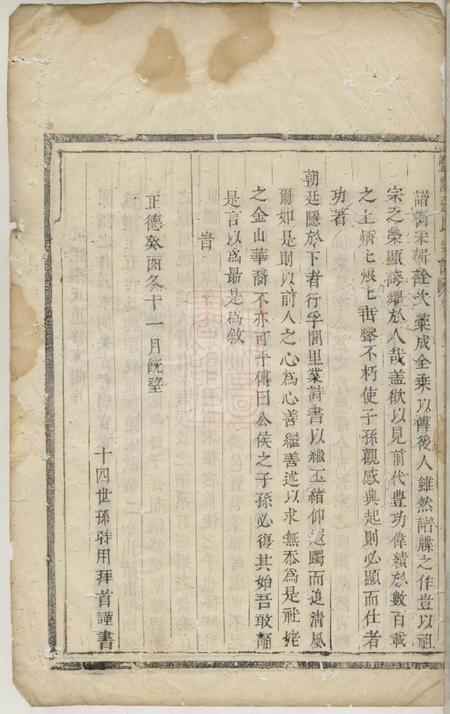 諸衡宋輯詮次藁成全乘以傳後人雖然譜牒之作豈以祖
宗之榮顯誇耀於人哉盖欲以見前代豐功偉績於數百載
之上炳七烺七由聲不朽使子孫觀感興起則必顯而仕者
功著
朝廷隱於下者行孚閭里業詩書以繼玉緒仰遺躅而追清風
爾如是則以前人之心為心善繼善述以求無忝為是社姥
之金山華裔不亦可乎傳曰公侯之子孫必復其始吾敢誦
是言以為最是為敘
旹
正德癸酉冬十一月既望
十四世孫時用拜首謹書